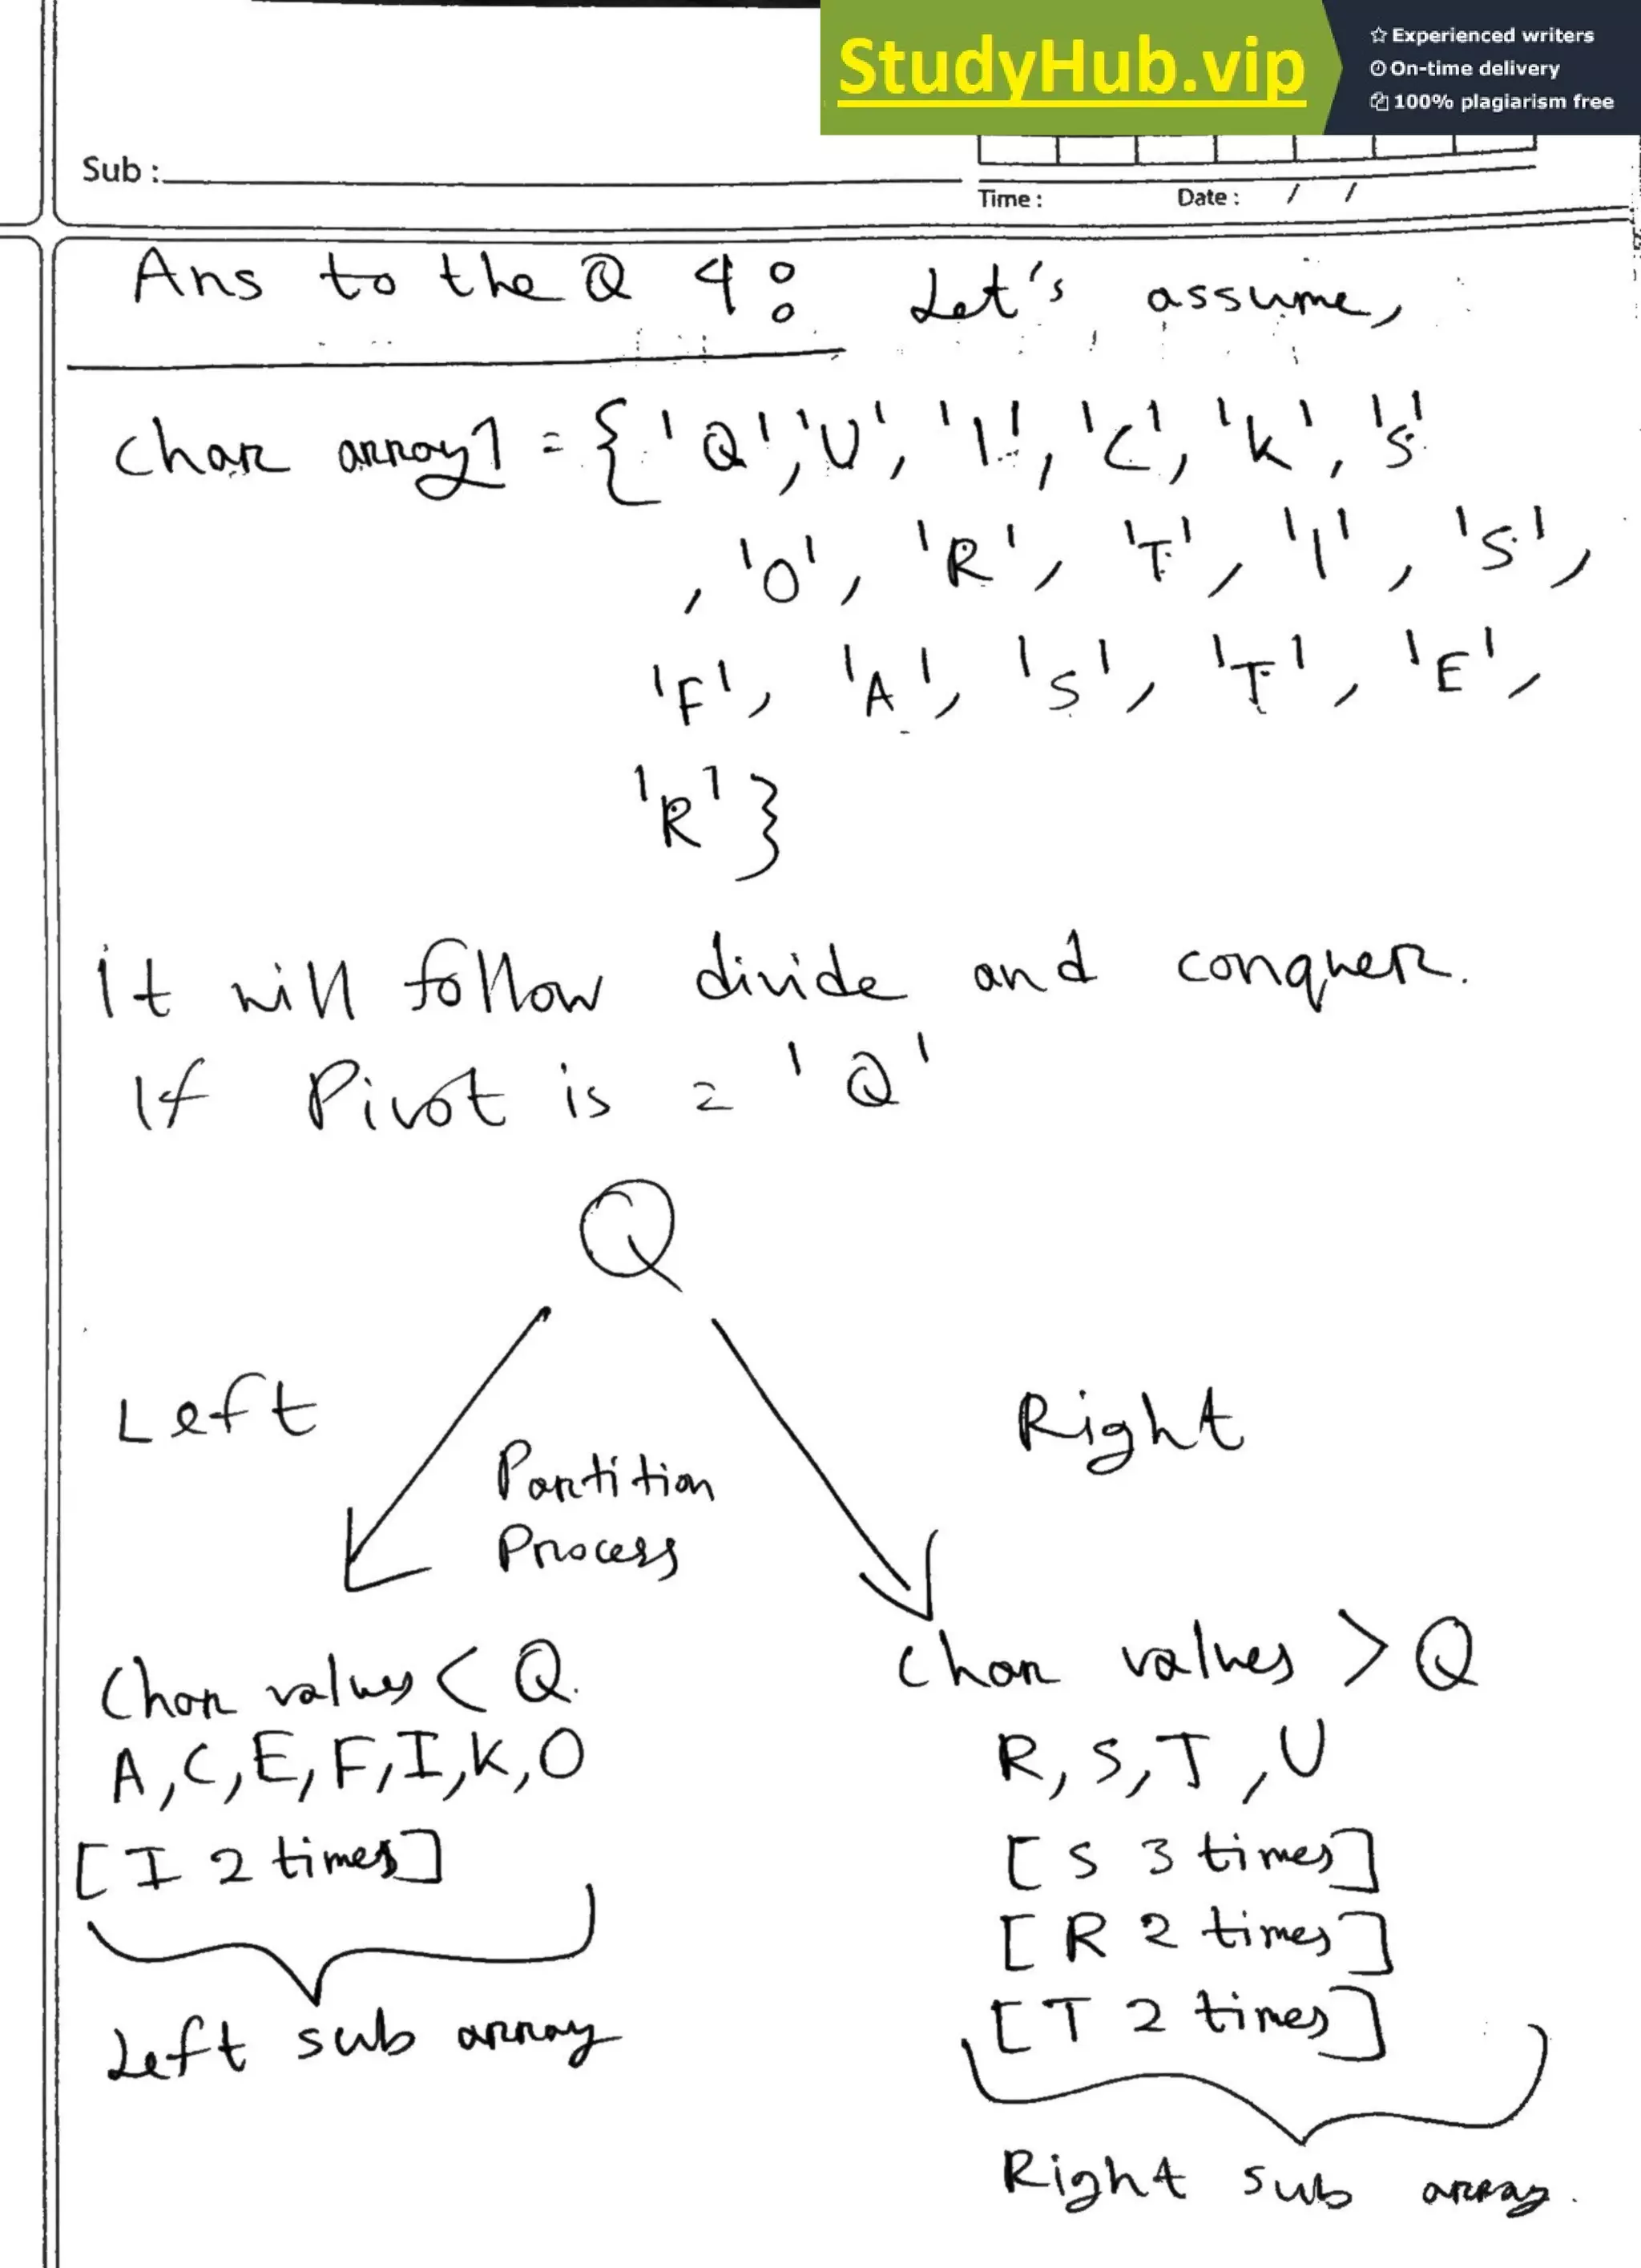 StudyHub.vip
Experienced writers
On-time delivery
100% plagiarism free
Sub :
Time :
Date : / /
Ans to the Q 4: Let's assume,
char array1 = {'Q','U', 'I', 'C', 'K', 'S'
, 'O', 'R', 'T', 'I', 'S',
'F', 'A', 'S', 'T', 'E',
'R'}
It will follow divide and conquer.
If Pivot is = 'Q'
Q
Left
Right
Partition
Process
Char values < Q.
A, C, E, F, I, K, O
[I 2 times]
Left sub array
Char values > Q
R, S, T, U
[S 3 times]
[R 2 times]
[T 2 times]
Right sub array.